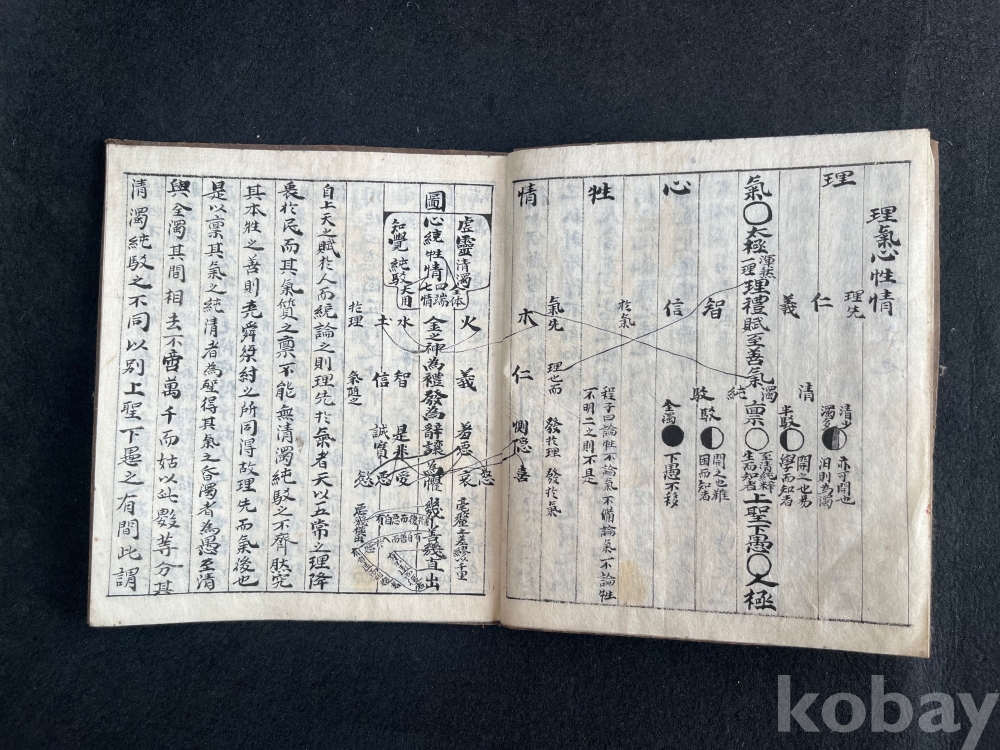 理氣心性情
理
心
性
情
理先
仁
義
氣〇太極
渾然
一理
理禮賦至善氣
稟〇
至清純粹
生而知者
上聖下愚〇人極
智
信
清
濁
純
駁
清少
濁多
亦可開也
汨則為濁
半駁
開之也易
學而知者
駁
開之也難
困而知者
全濁
下愚不移
於氣
程子曰論性不論氣不備論氣不論性
不明二之則不是
氣先
理也而
發於理 發於氣
木
仁
惻隱
喜
圖
虛靈
知覺
清濁
純駁
心統性情
四端
七情
全体
大用
火
義
羞惡
哀
金之神為禮發為辭讓為懼
幾善幾直出
水
智
是非
愛
土
信
誠實
惡
慾
毫釐之差繆以千里
於理
氣隨之
自上天之賦於人而統論之則理先於氣者天以五常之理降
衷於民而其氣質之稟不能無清濁純駁之不齊肰究
其本性之善則堯舜桀紂之所同得故理先而氣後也
是以稟其氣之純清者為聖得其氣之昏濁者為愚至清
與全濁其間相去不啻萬千而姑以此數等分其
清濁純駁之不同以別上聖下愚之有間此謂
kobay